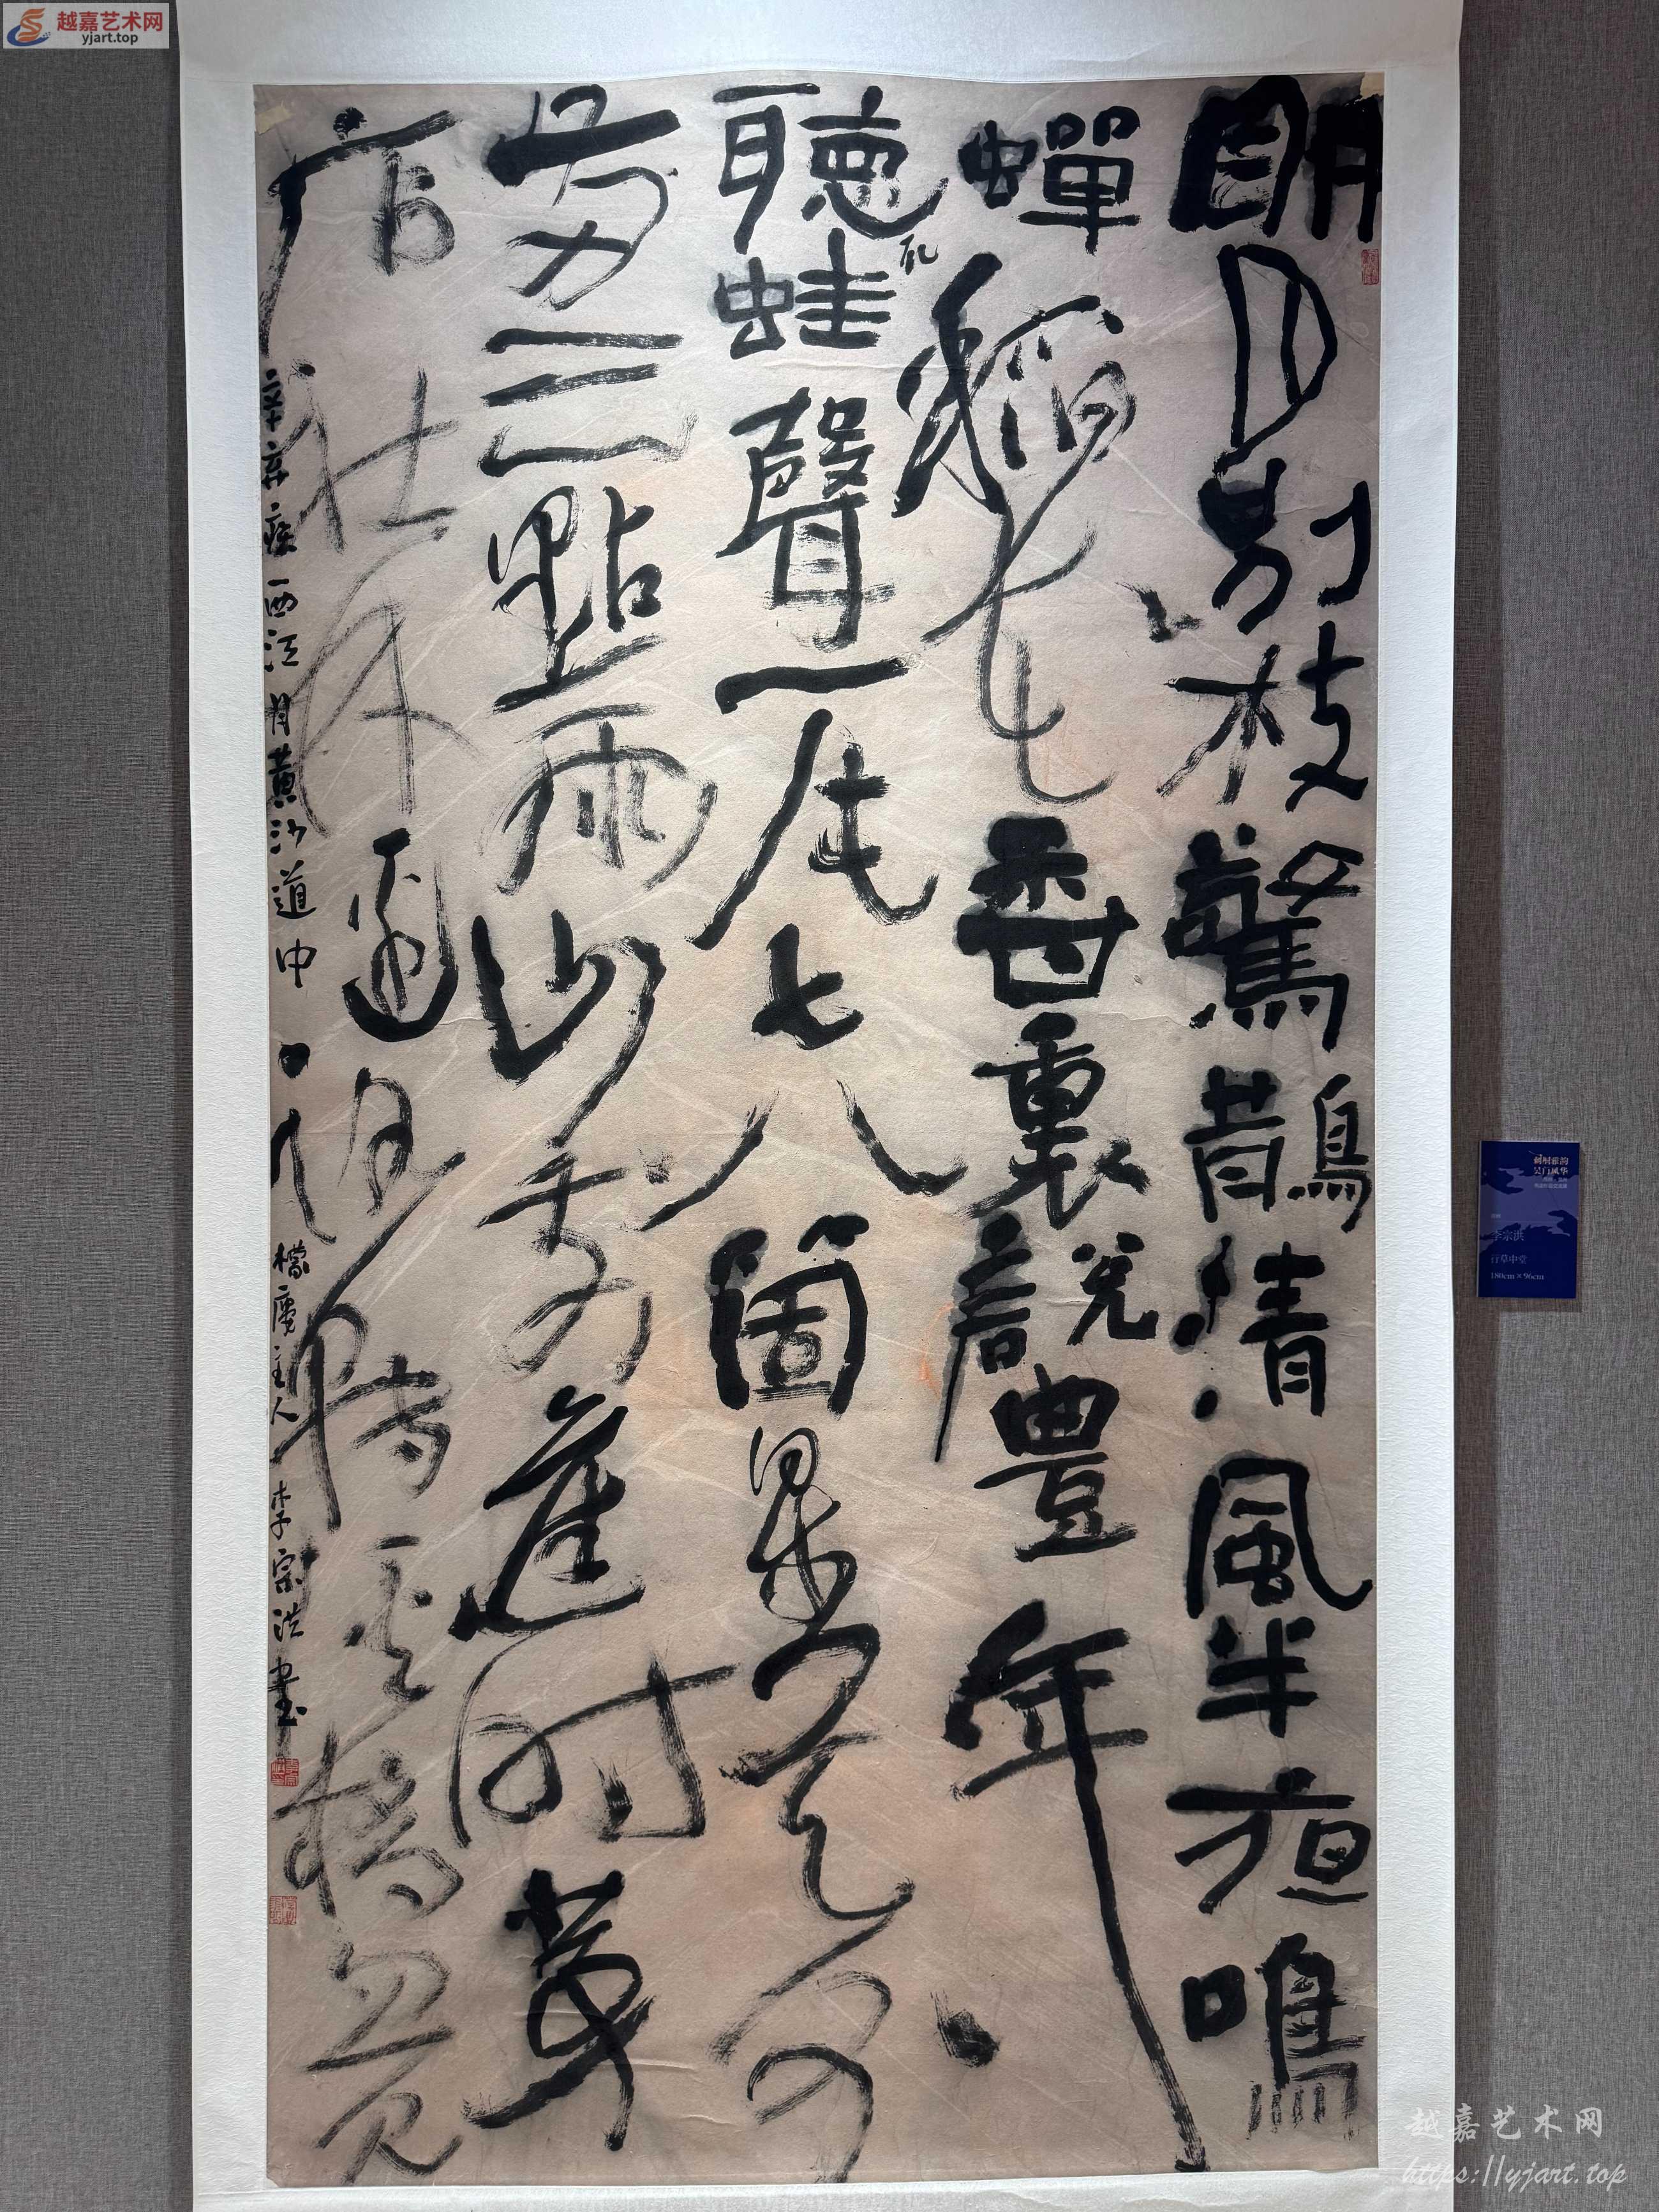 越嘉艺术网
yjart.top
明月别枝驚鵲清風半夜鳴
蟬稻花香裏説豊年
聽取蛙聲一片七八箇星天外
三點雨山前舊時茅
店社林邊路轉溪橋忽見
辛棄疾西江月黃沙道中
主人李宗洪書
李宗洪
行草中堂
180cm×96cm
越嘉艺术网
https://yjart.top